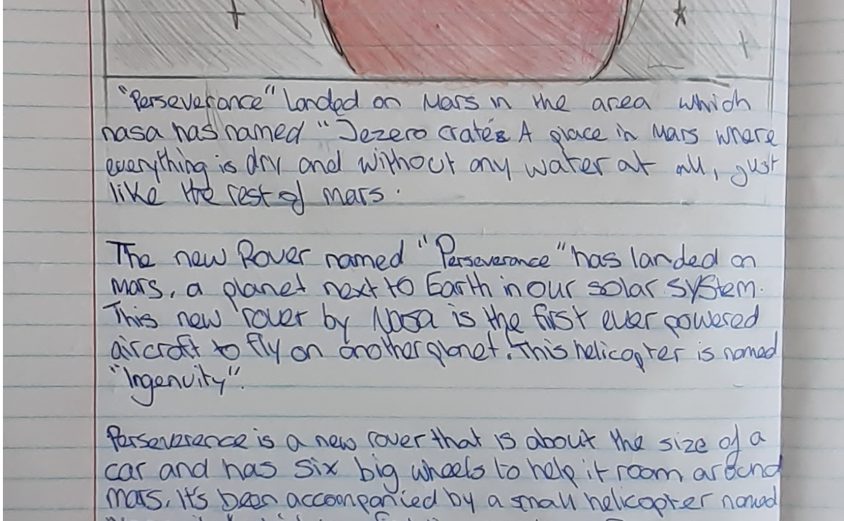 "Perseverance" landed on Mars in the area which
nasa has named "Jezero crater. A place in Mars where
everything is dry and without any water at all, just
like the rest of mars.
The new Rover named "Perseverance" has landed on
mars, a planet next to Earth in our solar system.
This new rover by Nasa is the first ever powered
aircraft to fly on another planet. This helicopter is named
"Ingenuity".
Perseverence is a new rover that is about the size of a
car and has six big wheels to help it room around
mars. It's been accompanied by a small helicopter named